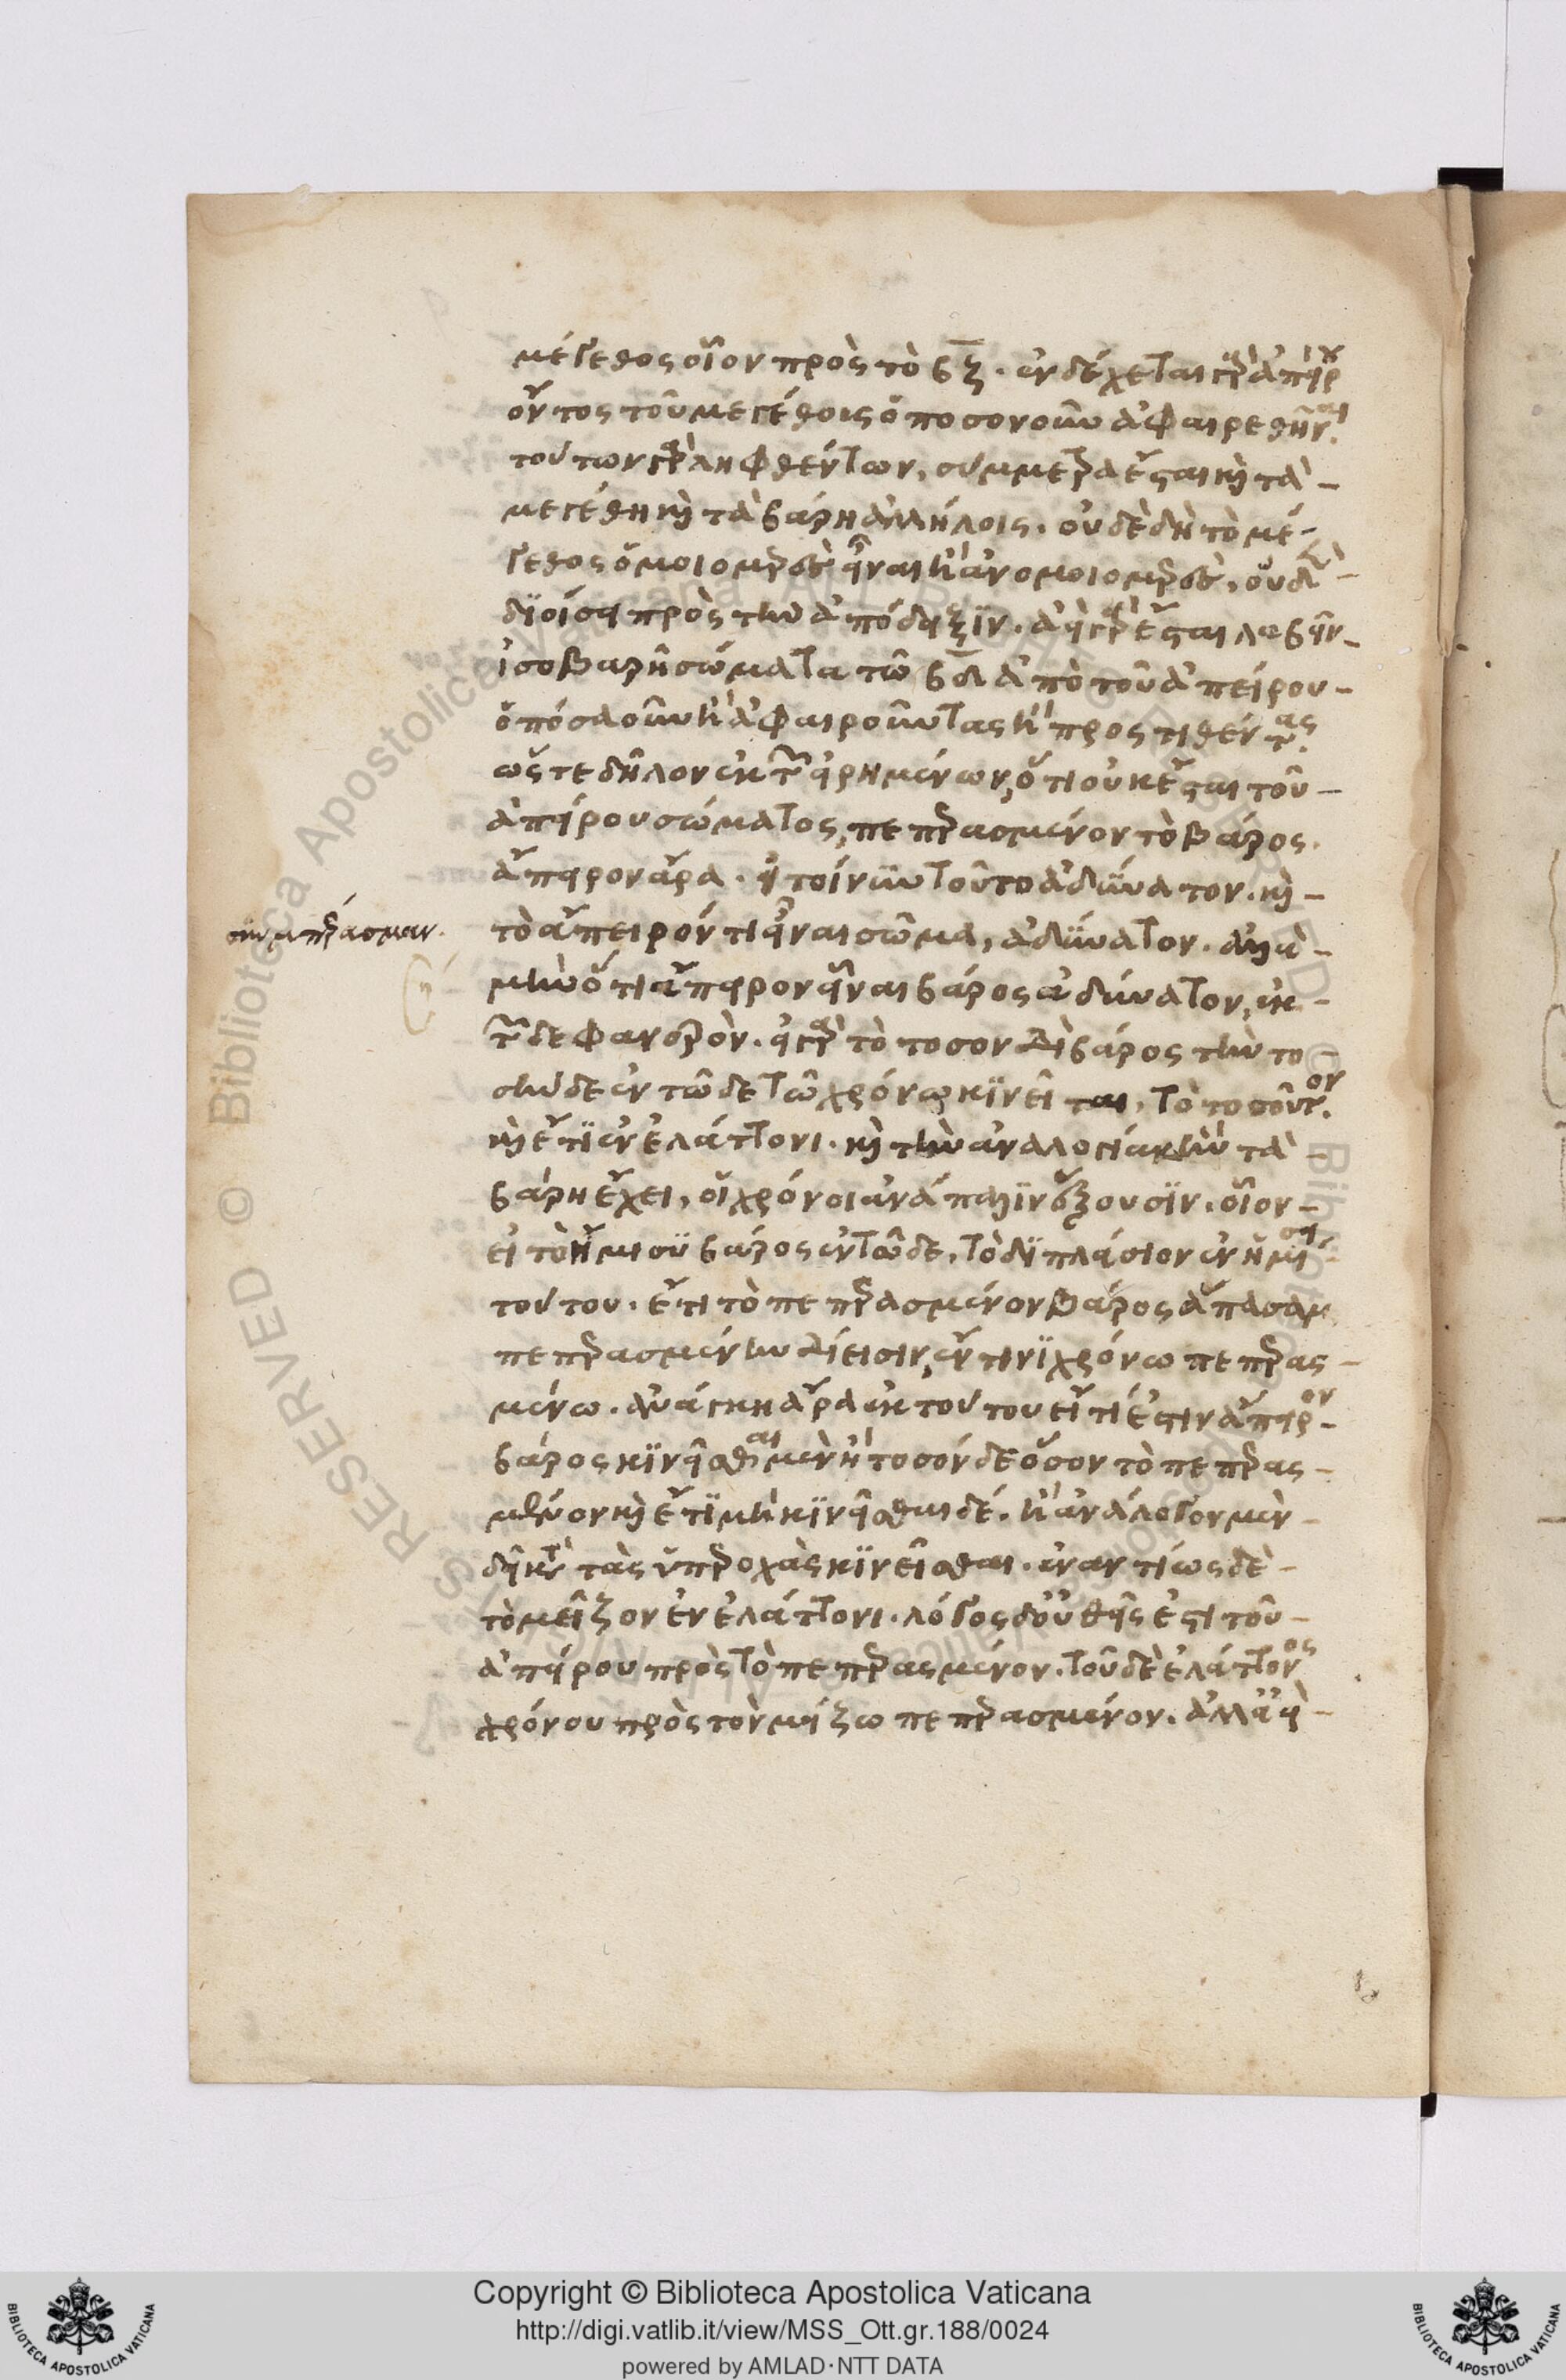 μέγεθος οἷον πρὸς τὸ βζ. ἐνδέχεται γὰρ ἀπείρου
ὄντος τοῦ μεγέθους ὁποσονοῦν ἀφαιρεθῆναι.
τούτων γὰρ ληφθέντων, σύμμετρα ἔσται καὶ τὰ
μεγέθη καὶ τὰ βάρη ἀλλήλοις. οὐδὲ δὴ τὸ μέ-
γεθος ὁμοιομερὲς εἶναι ἢ ἀνομοιομερὲς, οὐδὲν
διοίσει πρὸς τὴν ἀπόδειξιν. ἀεὶ γὰρ ἔσται λαβεῖν
ἰσοβαρῆ σώματα τῶ βδ ἀπὸ τοῦ ἀπείρου
ὁπόσα οὖν ἢ ἀφαιροῦντας ἢ προςτιθέντας.
ὥςτε δῆλον ἐκ τῶν εἰρημένων, ὅτι οὐκ ἔσται τοῦ
ἀπείρου σώματος, πεπερασμένον τὸ βάρος.
ἄπειρον ἄρα. εἰ τοίνυν τοῦτο ἀδύνατον. καὶ
τὸ ἄπειρόν τι εἶναι σῶμα, ἀδύνατον. ἀλλὰ
συμπέρασμα.
μὴν ὅτι ἄπειρον εἶναι βάρος ἀδύνατον, ἐκ
τῶνδε φανερόν. εἰ γὰρ τὸ τοσονδὶ βάρος τὴν το
σήνδε ἐν τῶδε τῶ χρόνω κινεῖται, τὸ τοσοῦτον
καὶ ἔτι ἐν ἐλάττονι. καὶ τὴν ἀναλογίαν ἣν τὰ
βάρη ἔχει, οἱ χρόνοι ἀνάπαλιν ἕξουσιν. οἷον
εἰ τὸ ἥμισυ βάρος ἐν τῶδε, τὸ διπλάσιον ἐν ἡμίσει
τούτου. ἔτι τὸ πεπερασμένον βάρος ἅπασαν
πεπερασμένην δίεισιν, ἔν τινι χρόνω πεπερας
μένω. ἀνάγκη ἄρα ἐκ τούτου εἴ τί ἐστιν ἄπειρον
βάρος κινεῖσθαι μὲν ἢ τοσόνδε ὅσον τὸ πεπερας
μένον καὶ ἔτι μὴ κινεῖσθαι δέ. ἢ ἀνάλογον μὲν
δεῖ κατὰ τὰς ὑπεροχὰς κινεῖσθαι. ἐναντίως δὲ
τὸ μεῖζον ἐν ἐλάττονι. λόγος δ' οὐθείς ἐστι τοῦ
ἀπείρου πρὸς τὸ πεπερασμένον. τοῦ δὲ ἐλάττονος
χρόνου πρὸς τὸν μείζω πεπερασμένον. ἀλλ' ἀεὶ